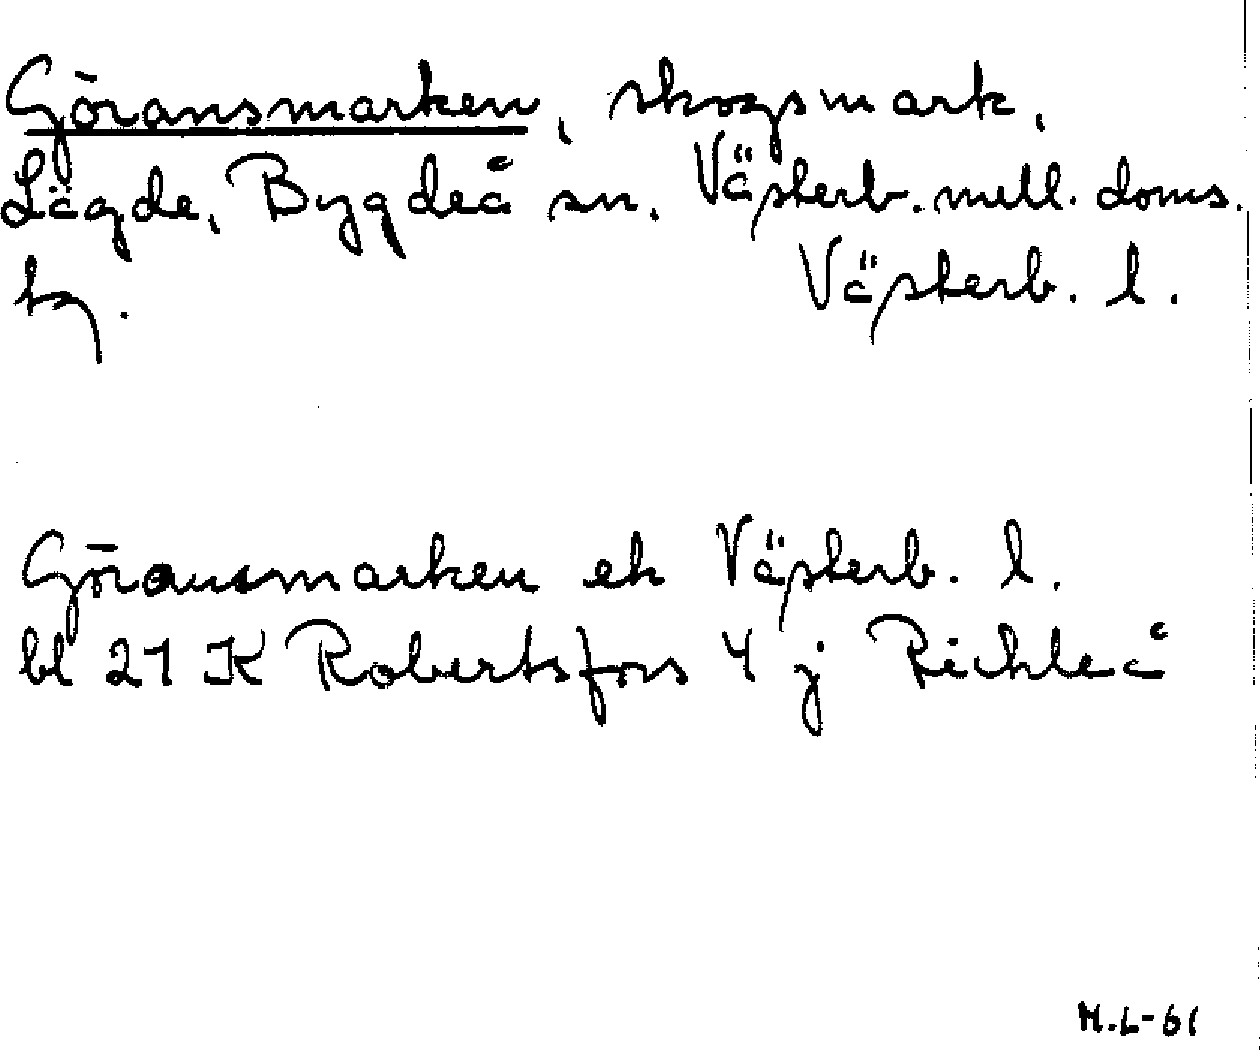 Göransmarken, skogsmark,
Lägde, Bygdeå sn, Västerb. mell. doms.
tg. Västerb. l.
Göransmarken ek Västerb. l.
bl 21 K Robertsfors 4 j Rickleå
M.L-61